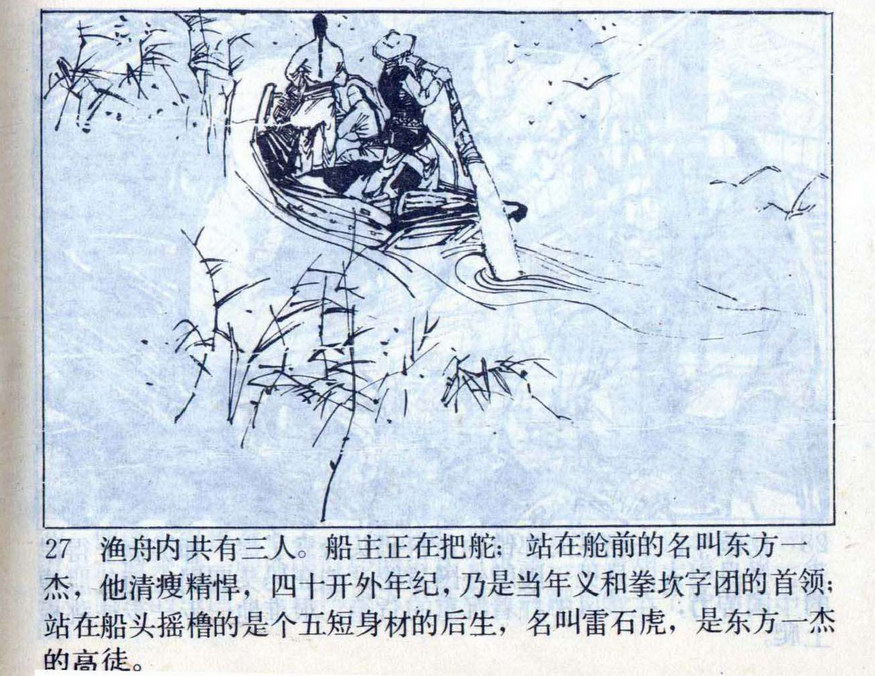 27 渔舟内共有三人。船主正在把舵；站在舱前的名叫东方一
杰，他清瘦精悍，四十开外年纪，乃是当年义和拳坎字团的首领；
站在船头摇橹的是个五短身材的后生，名叫雷石虎，是东方一杰
的高徒。